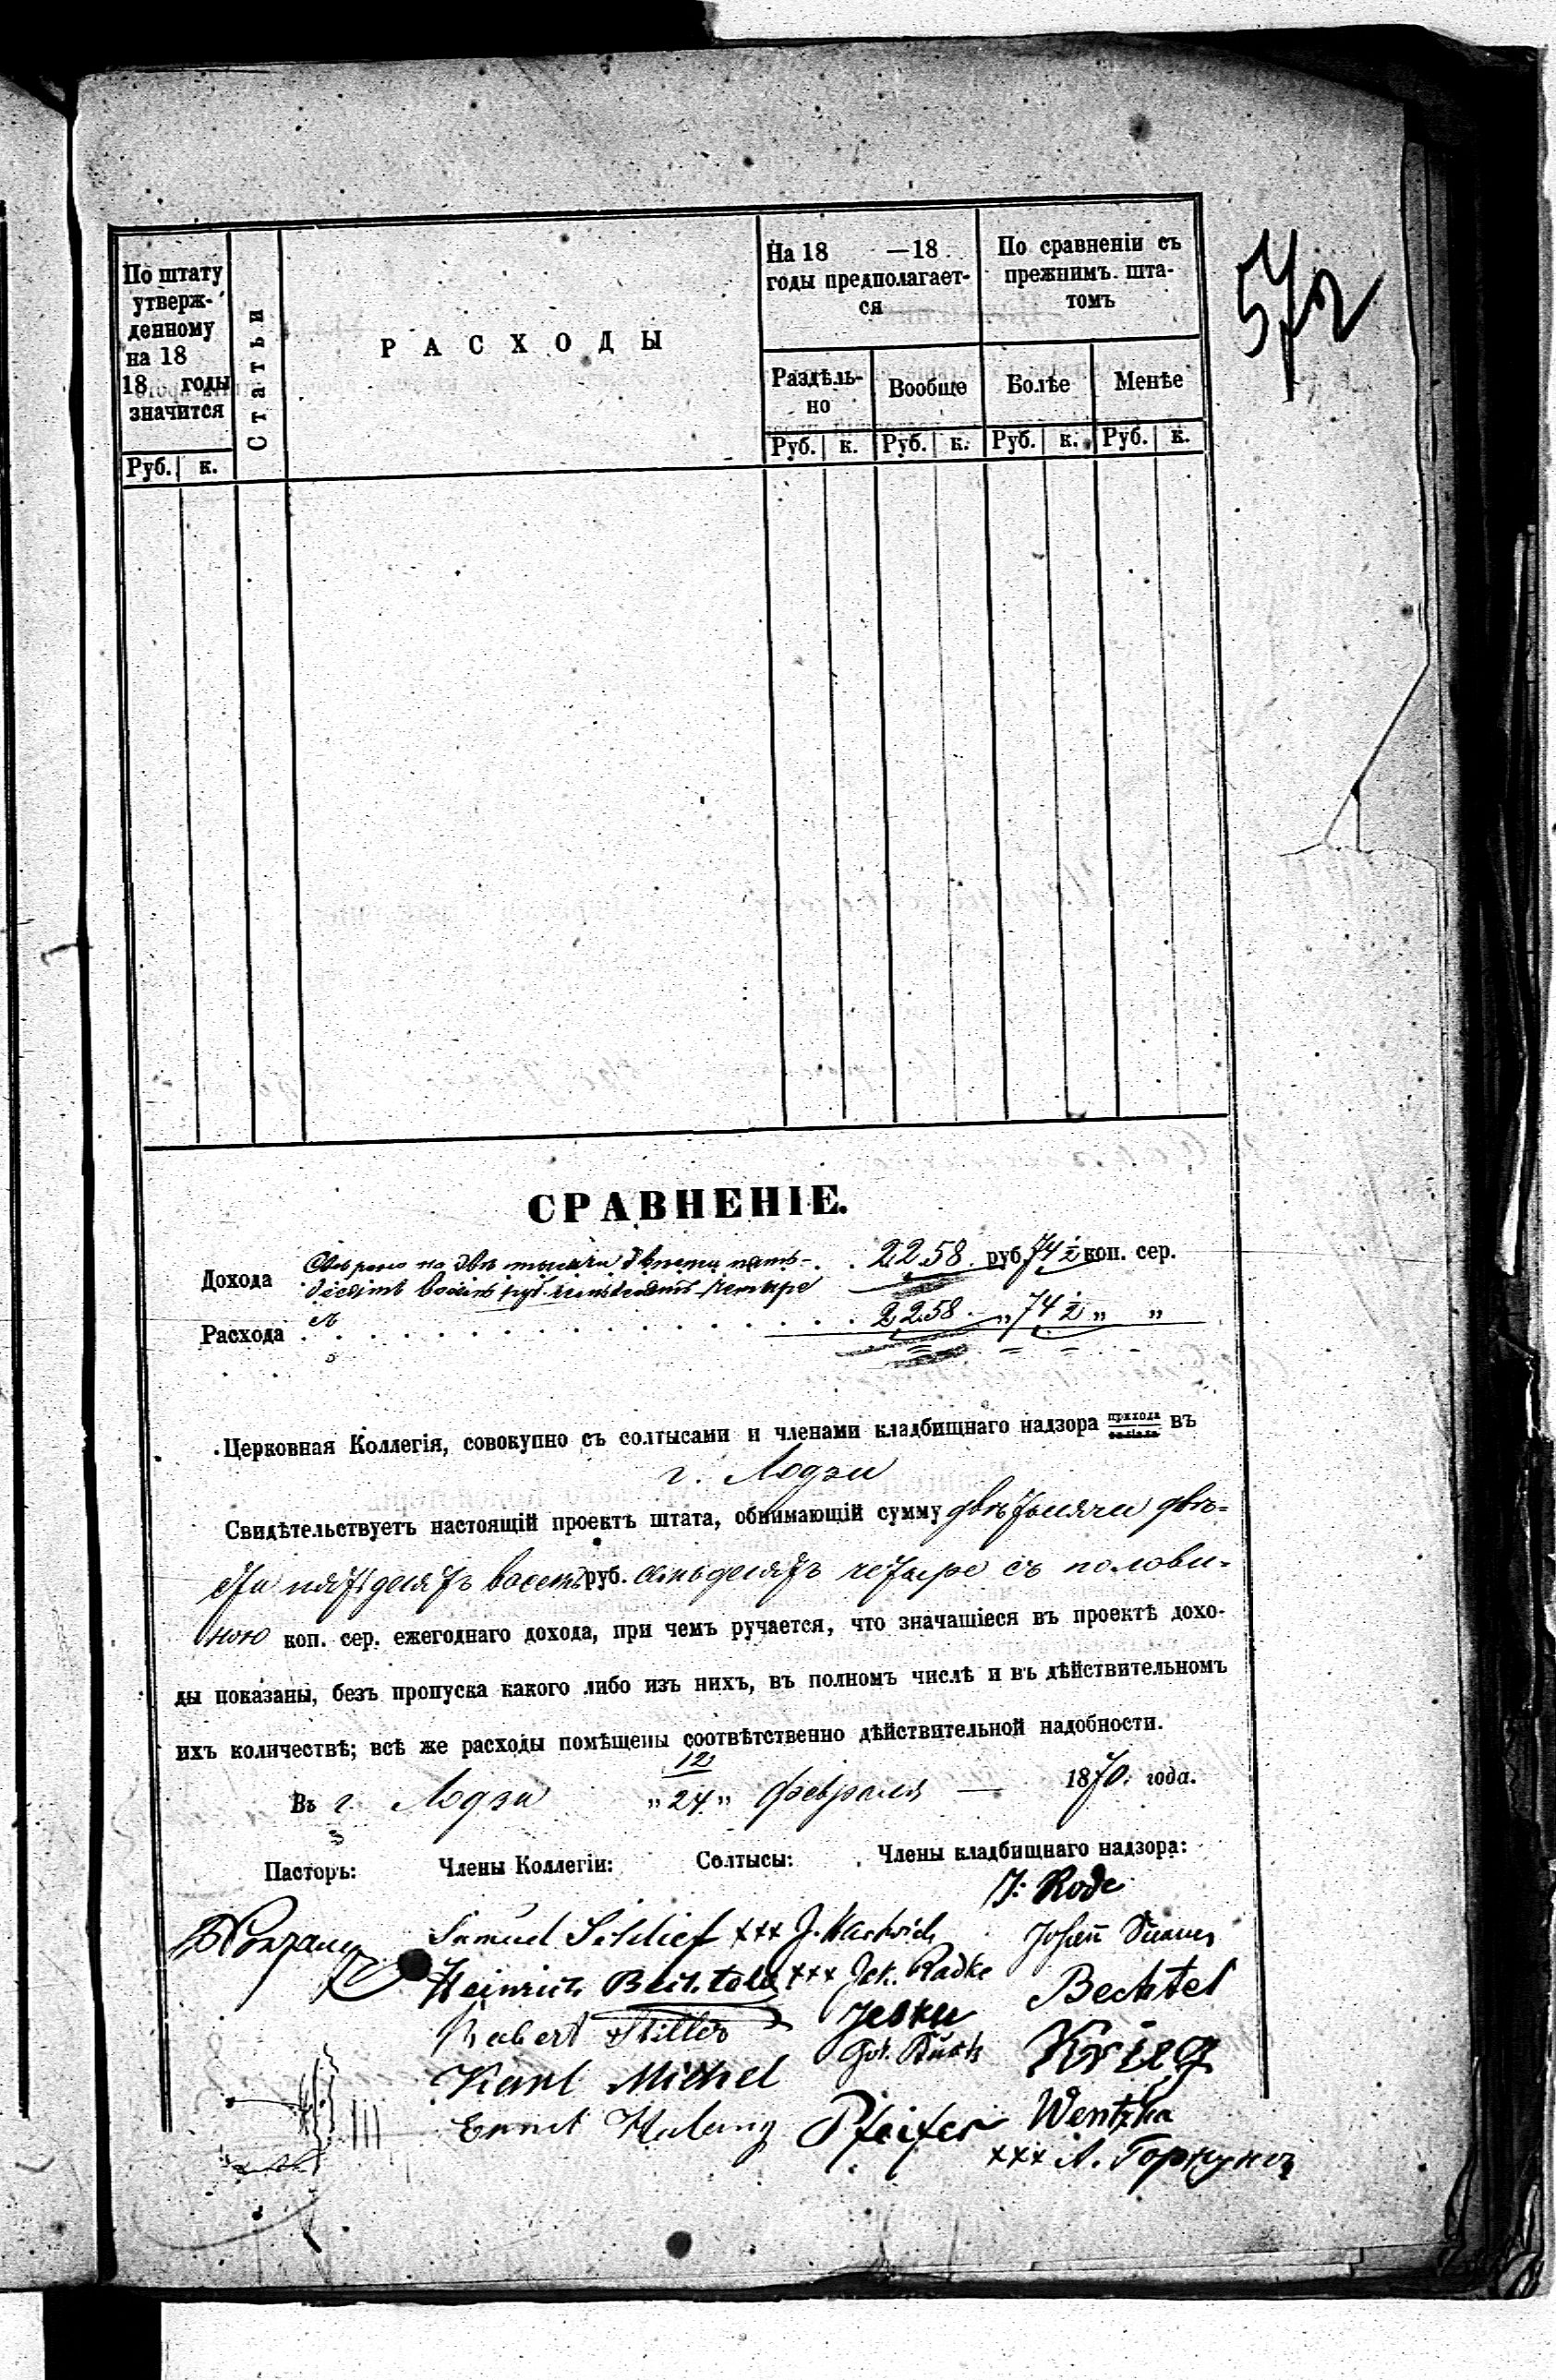 572
По штату
утверж-
денному
на 18
18 годы
значится
Руб. к.
Статьи
РАСХОДЫ
На 18 —18
годы предполагает-
ся
Раздѣль-
но
Вообще
По сравненіи съ
прежнимъ шта-
томъ
Болѣе
Менѣе
Руб. к. Руб. к. Руб. к. Руб. к.
СРАВНЕНІЕ.
на двѣ тысячи двѣсти пять-
Дохода 2258 руб 74 ½ коп. сер.
десятъ восемь руб. семьдесятъ четыре
Расхода 2258 „ 74 ½ „ „
Церковная Коллегія, совокупно съ солтысами и членами кладбищнаго надзора прихода въ
г. Лодзи
Свидѣтельствуетъ настоящій проектъ штата, обнимающій сумму двѣ тысячи двѣ-
сти пятьдесятъ восемь руб. семьдесятъ четыре съ полови-
ною коп. сер. ежегоднаго дохода, при чемъ ручается, что значащіеся въ проектѣ дохо-
ды показаны, безъ пропуска какого либо изъ нихъ, въ полномъ числѣ и въ дѣйствительномъ
ихъ количествѣ; всѣ же расходы помѣщены соотвѣтственно дѣйствительной надобности.
12
Въ г. Лодзи „24„ Февраля — 1870 года.
Пасторъ: Члены Коллегіи: Солтысы: Члены кладбищнаго надзора:
J: Rode
Samuel Schlief xxx J. Hartwich Johann
Heinrich Bechtold xxx Jak. Radke Bechtel
Robert Stiller Jesku Krieg
Karl Michel Got.
Ernst Pfeifer Wentzka
xxx А.